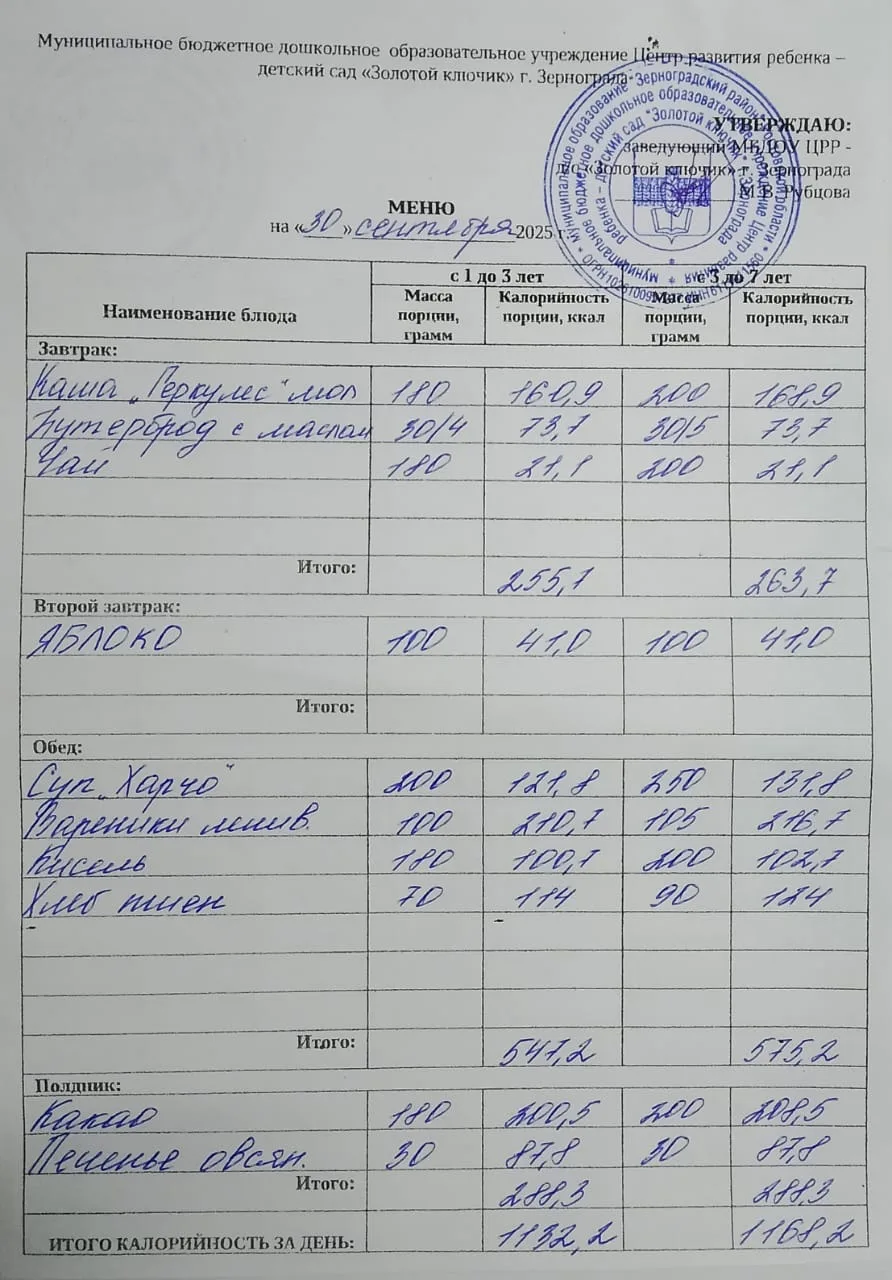 Муниципальное бюджетное дошкольное образовательное учреждение Центр развития ребенка –
детский сад «Золотой ключик» г. Зернограда
УТВЕРЖДАЮ:
заведующий МБДОУ ЦРР -
д/с «Золотой ключик» г. Зернограда
М.В. Рубцова
МЕНЮ
на «30» сентября 2025 г.
Наименование блюда с 1 до 3 лет с 3 до 7 лет
Масса порции, грамм Калорийность порции, ккал Масса порции, грамм Калорийность порции, ккал
Завтрак:
Каша „Геркулес" мол 180 160,9 200 168,9
Бутерброд с маслом 30/4 73,7 30/5 73,7
Чай 180 21,1 200 21,1
Итого: 255,1 263,7
Второй завтрак:
ЯБЛОКО 100 41,0 100 41,0
Итого:
Обед:
Суп „Харчо" 200 121,8 250 131,8
Вареники ленив. 100 210,7 105 216,7
Кисель 180 100,7 200 102,7
Хлеб пшен 70 114 90 124
Итого: 547,2 575,2
Полдник:
Какао 180 200,5 200 208,5
Печенье овсян. 30 87,8 30 87,8
Итого: 288,3 288,3
ИТОГО КАЛОРИЙНОСТЬ ЗА ДЕНЬ: 1132,2 1168,2